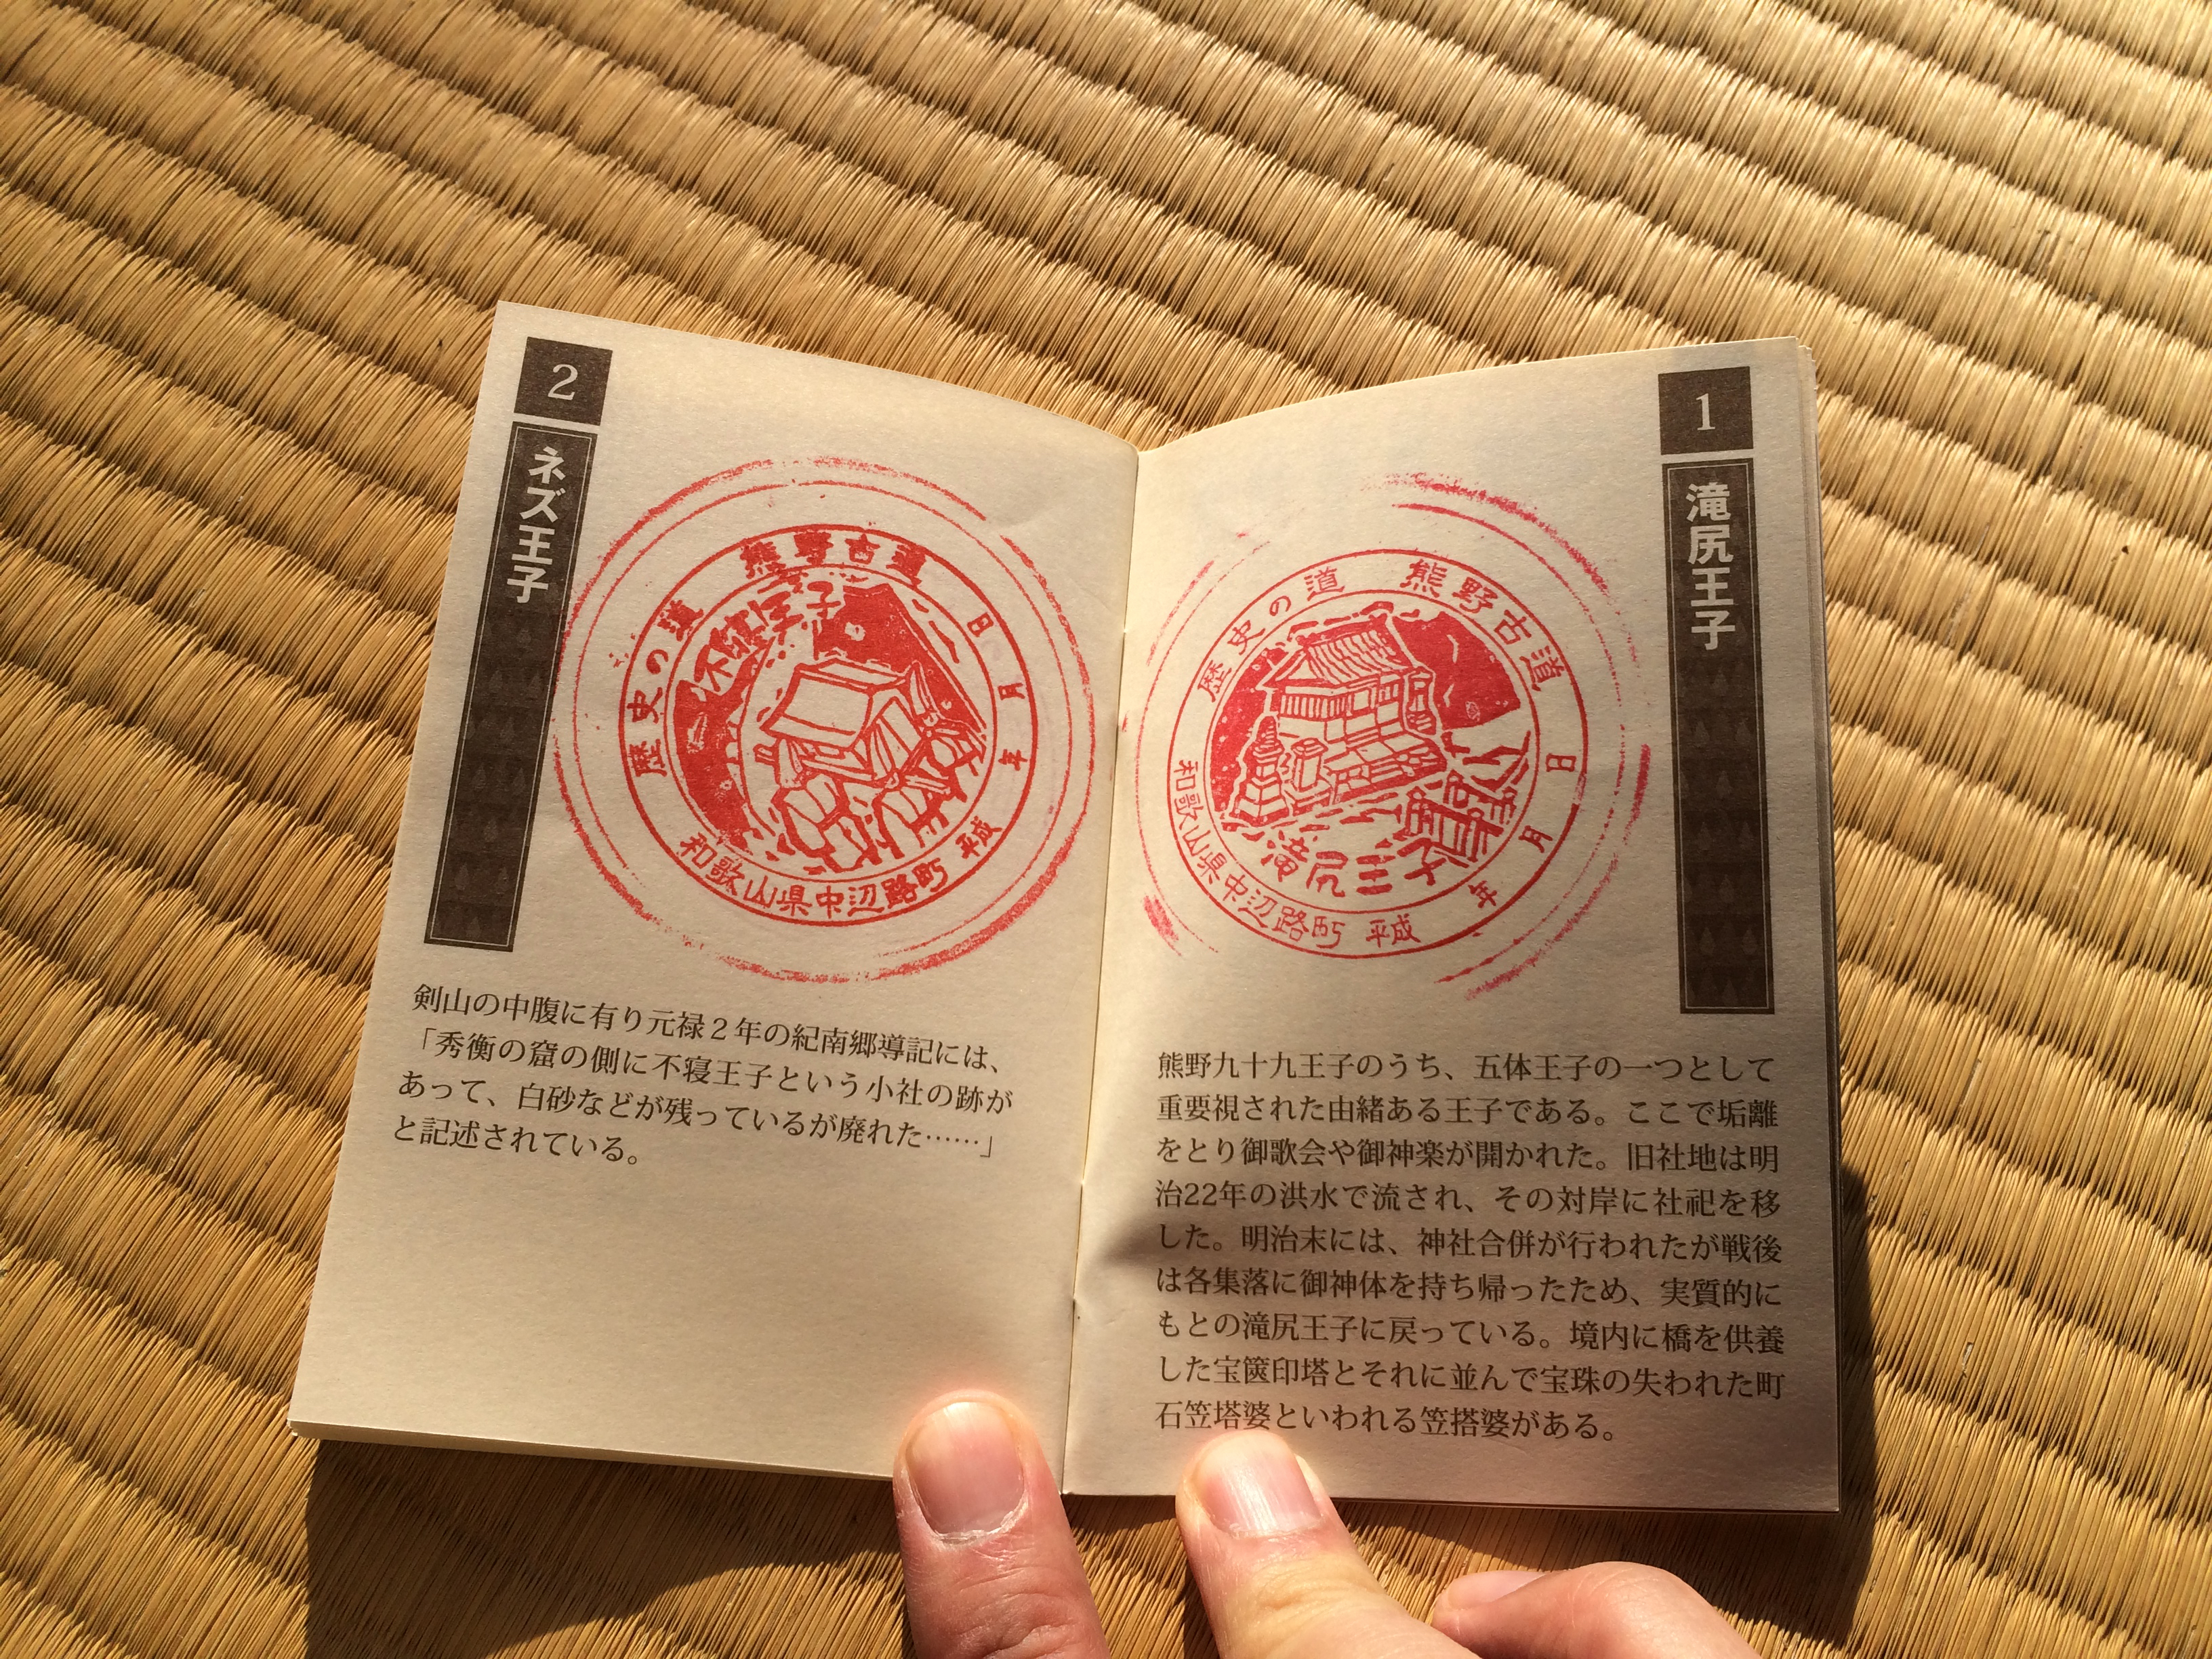 1
滝尻王子
歴史の道 熊野古道
日 月 年
和歌山県中辺路町 平成
滝尻王子
熊野九十九王子のうち、五体王子の一つとして
重要視された由緒ある王子である。ここで垢離
をとり御歌会や御神楽が開かれた。旧社地は明
治22年の洪水で流され、その対岸に社祀を移
した。明治末には、神社合併が行われたが戦後
は各集落に御神体を持ち帰ったため、実質的に
もとの滝尻王子に戻っている。境内に橋を供養
した宝篋印塔とそれに並んで宝珠の失われた町
石笠塔婆といわれる笠搭婆がある。
2
ネズ王子
歴史の道 熊野古道
日 月 年
和歌山県中辺路町 平成
不寝王子
剣山の中腹に有り元禄２年の紀南郷導記には、
「秀衡の窟の側に不寝王子という小社の跡が
あって、白砂などが残っているが廃れた……」
と記述されている。